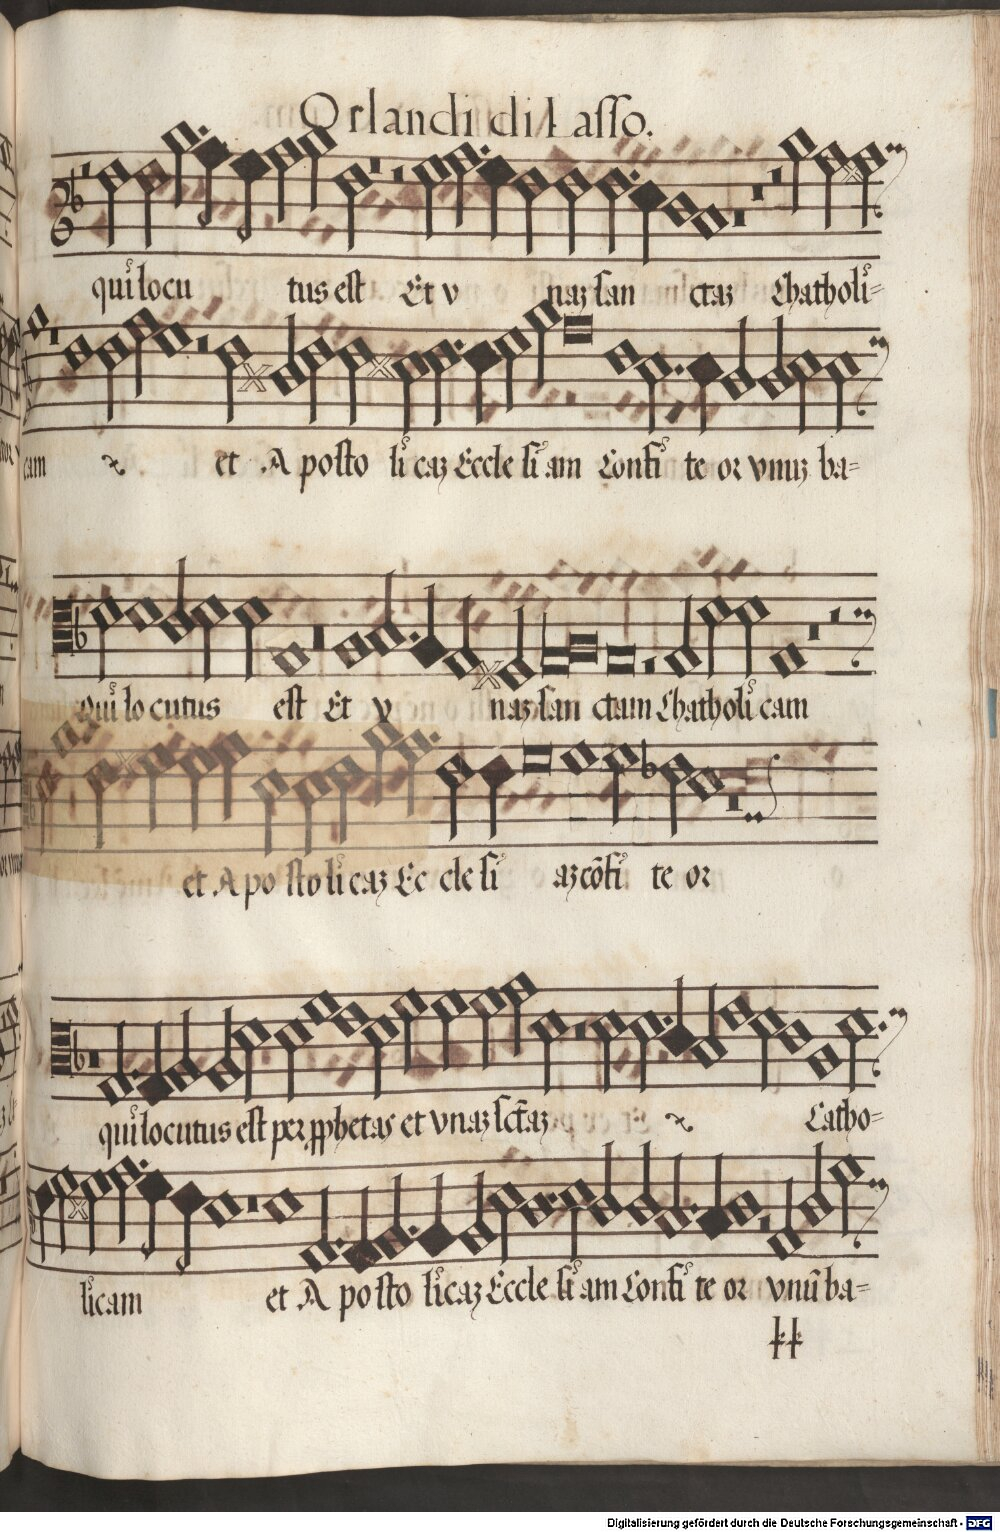 Orlandi di Lasso.
qui locu tus est Et v naz san ctaz Chatholi=
cam et Aposto li caz Eccle si am Confi te or vnuz ba=
Qui lo cutus est Et v naz san ctam Chatholi cam
et Apo stoli caz Ec cle si az cõfi te or
qui locutus est per pphetas et vnaz sctaz Catho=
licam et Aposto licaz Eccle si am Confi te or vnũ ba=
kk
Digitalisierung gefördert durch die Deutsche Forschungsgemeinschaft - DFG